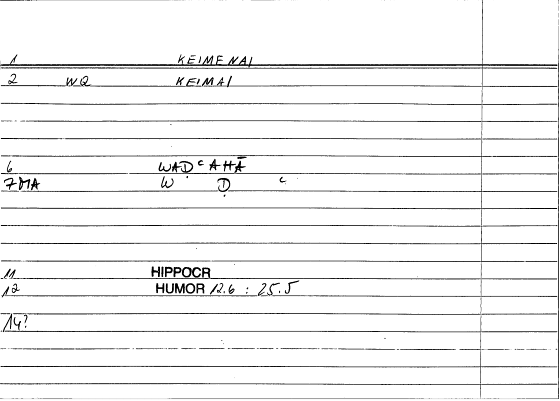 1 KEIMENAI
2 WQ KEIMAI
6 WAḌ ᶜ AHĀ
7 MA W Ḍ ᶜ
11 HIPPOCR
12 HUMOR 12.6 : 25.5
14?